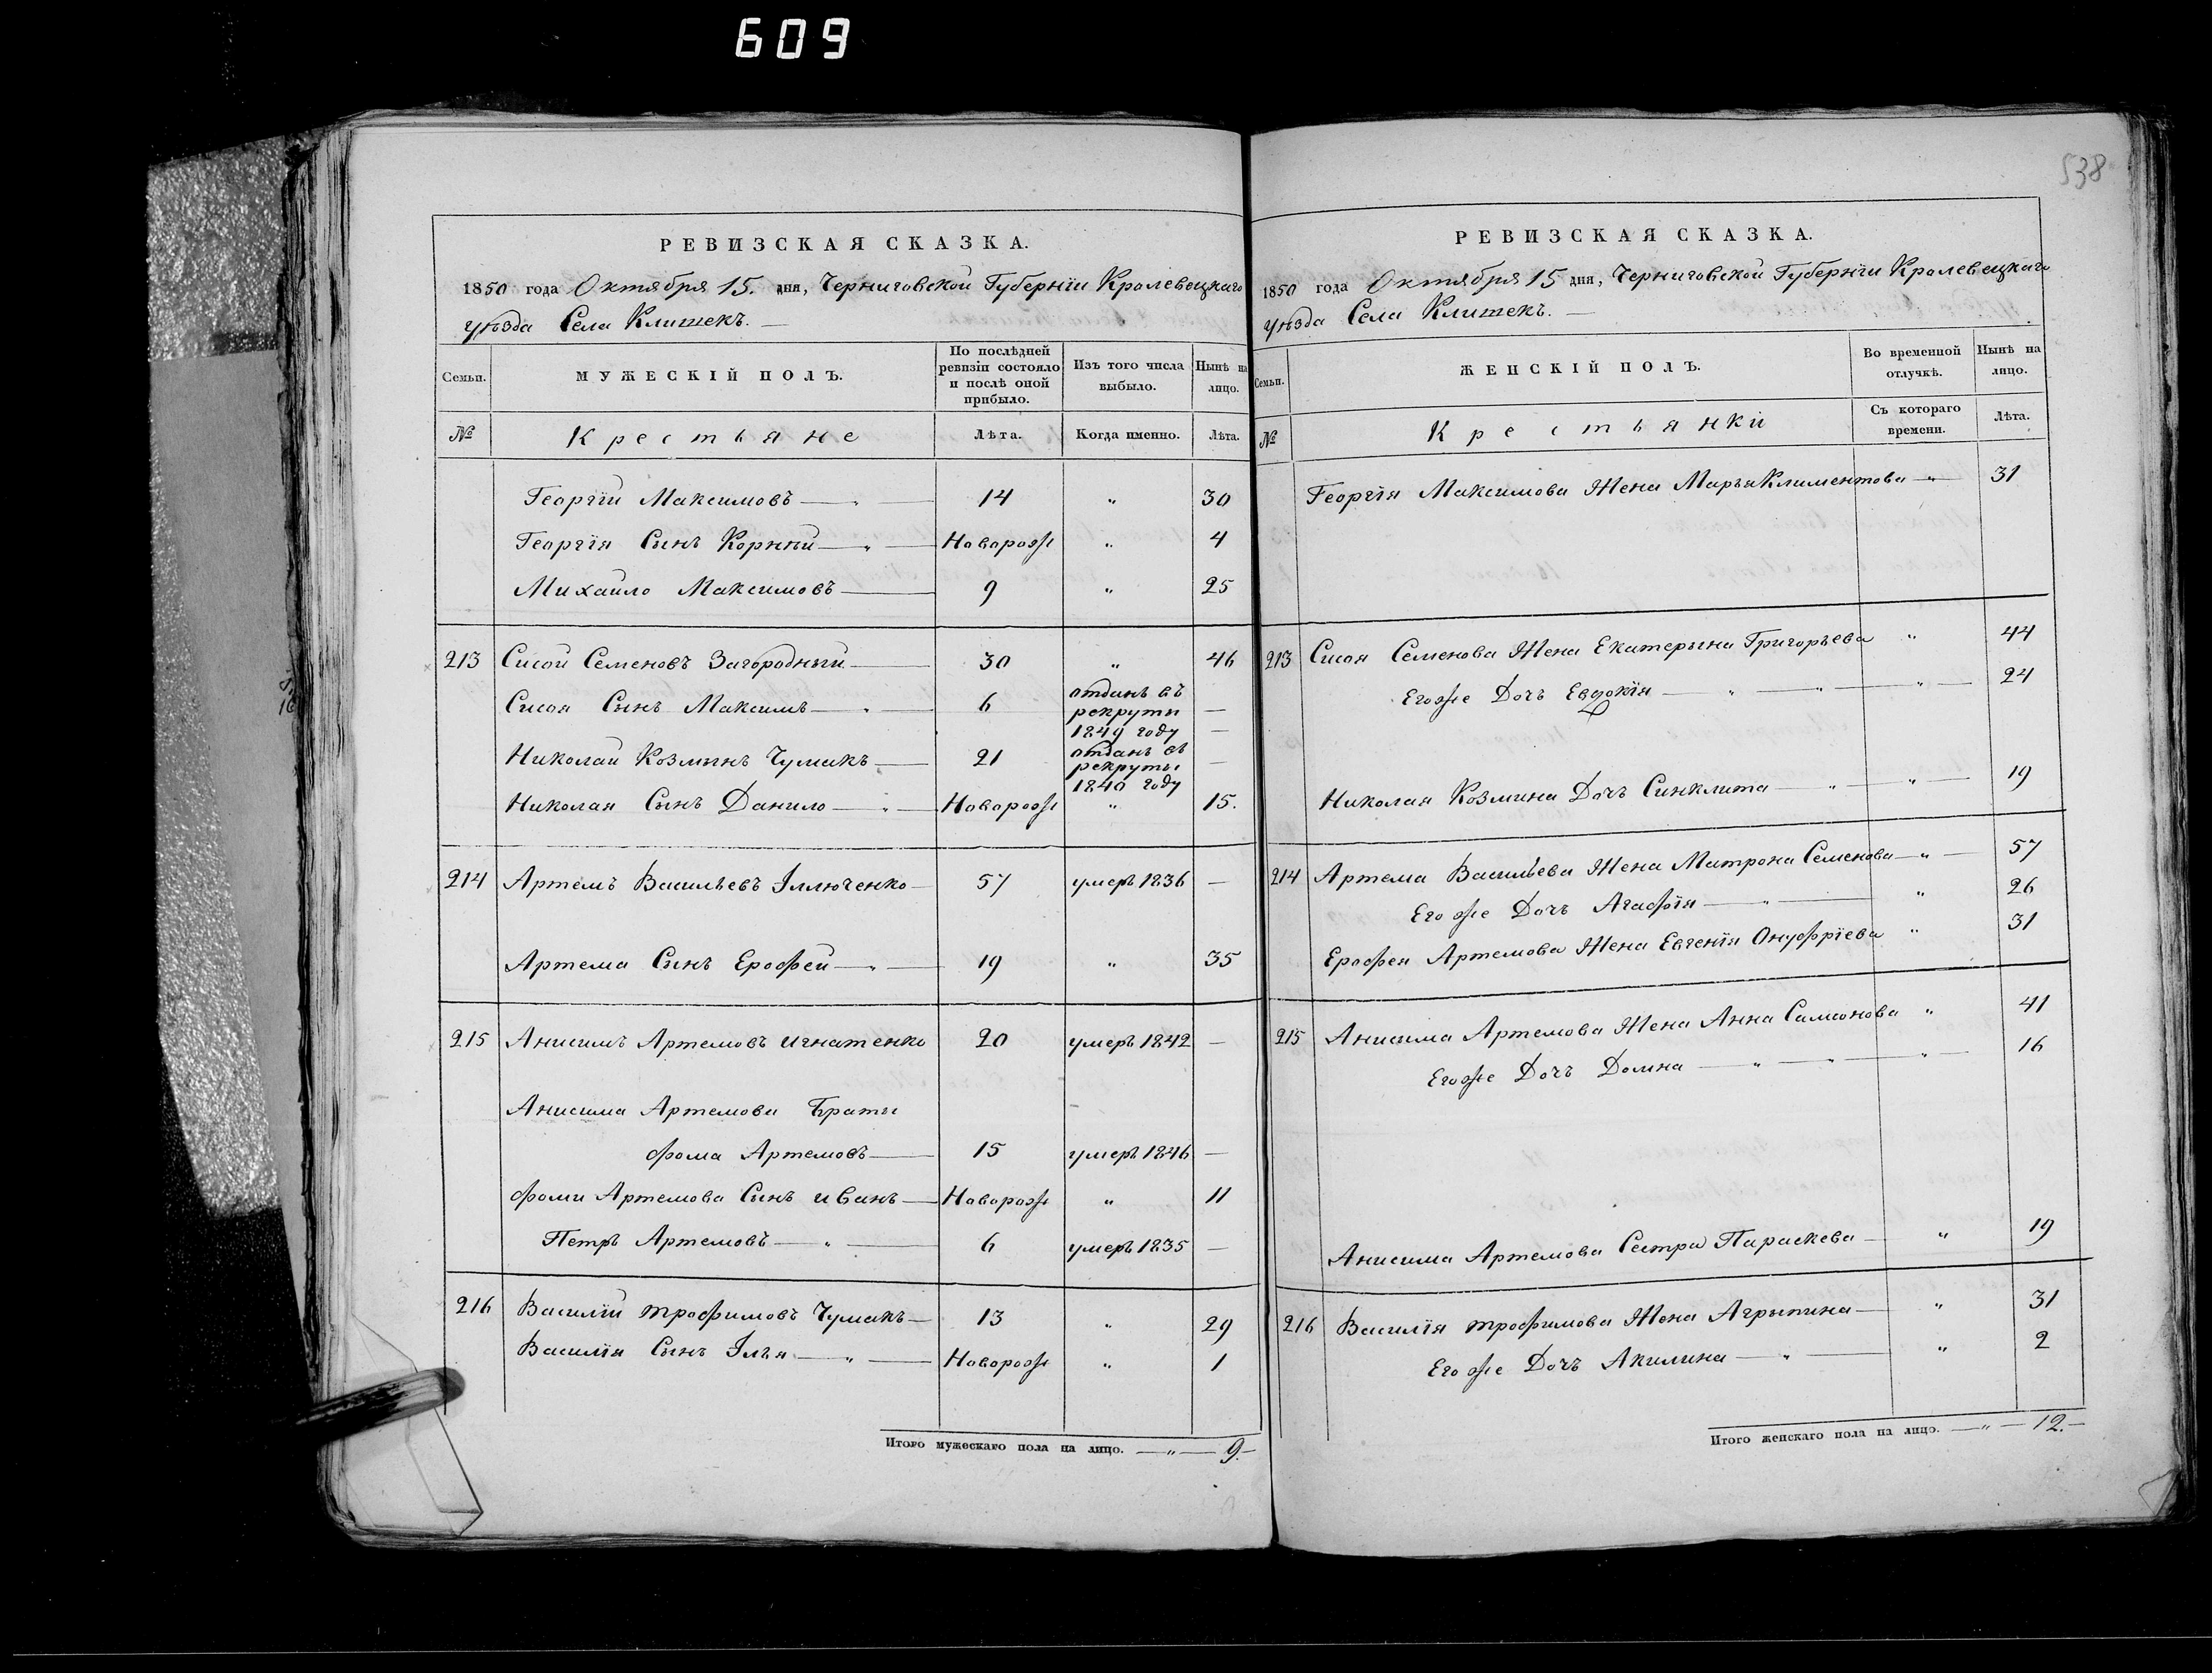 609
538
РЕВИЗСКАЯ СКАЗКА.
1850 года Октября 15. дня, Черниговской Губернїи Кролевецкаго
уѣзда Села Клишекъ. —
Семьи. МУЖЕСКІЙ ПОЛЪ. По послѣдней ревизіи состояло и послѣ оной прибыло. Изъ того числа выбыло. Нынѣ на лицо.
№ Крестьяне Лѣта. Когда именно. Лѣта.
Георгїй Максимовъ — 14 „ 30
Георгїя Сынъ Корнѣй — „ — Новорож „ 4
Михайло Максимовъ — 9 „ 25
213 Сисой Семеновъ Загородный — 30 „ 46
Сисоя Сынъ Максимъ — „ — 6 отданъ въ рекруты 1849 году —
Николай Козминъ Чумакъ — 21 отданъ въ рекруты 1840 году —
Николая Сынъ Данило — „ — Новорож „ 15.
214 Артемъ Васильевъ Іллюченко — 57 умеръ 1836 —
Артема Сынъ Ерофей — „ — 19 „ 35
215 Анисимъ Артемовъ Игнатенко 20 умеръ 1842 —
Анисима Артемова Браты
Фома Артемовъ — 15 умеръ 1846 —
Фомы Артемова Сынъ Иванъ — Новорож „ 11
Петръ Артемовъ — „ — 6 умеръ 1835 —
216 Василїй Трофимовъ Чумакъ — 13 „ 29
Василїя Сынъ Ілья — „ — Новорож „ 1
Итого мужескаго пола на лицо. — „ — 9. —
РЕВИЗСКАЯ СКАЗКА.
1850 года Октября 15 дня, Черниговской Губернїи Кролевецкаго
уѣзда Села Клишекъ. —
Семьи. ЖЕНСКІЙ ПОЛЪ. Во временной отлучкѣ. Нынѣ на лицо.
№ Крестьянки Съ котораго времени. Лѣта.
Георгїя Максимова Жена Марья Климентова — „ — 31
213 Сисоя Семенова Жена Екатерына Григорьева „ 44
Его же Дочъ Евдокїя — „ — „ — „ — 24
Николая Козмина Дочъ Синклита — „ — „ — 19
214 Артема Васильева Жена Матрона Семенова — „ — 57
Его же Дочъ Агафїя — „ — „ 26
Ерофея Артемова Жена Евгенїя Онуфрїева „ 31
215 Анисима Артемова Жена Анна Самсонова „ 41
Его же Дочъ Домна — „ — „ — „ — 16
Анисима Артемова Сестра Параскева — „ 19
216 Василїя Трофимова Жена Агрыпина — „ 31
Его же Дочъ Акилина — „ — „ 2
Итого женскаго пола на лицо. — „ — 12. —